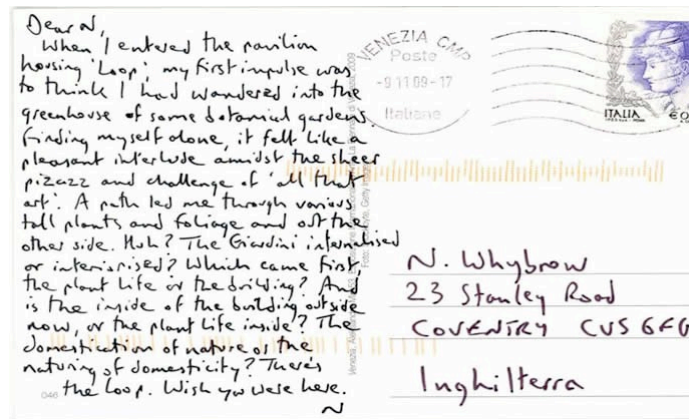 Dear N,
When I entered the pavilion
housing 'Loop', my first impulse was
to think I had wandered into the
greenhouse of some botanical gardens.
Finding myself alone, it felt like a
pleasant interlude amidst the sheer
pizazz and challenge of 'all that
art'. A path led me through various
tall plants and foliage and out the
other side. Huh? The Giardini internalised
or interiorised? Which came first
the plant life or the building? And
is the inside of the building outside
now, or the plant life inside? The
domestication of nature or the
naturing of domesticity? There's
the loop. Wish you were here.
N
046
VENEZIA CMP
Poste
-9 11 09-17
Italiane
ITALIA
€0
N. Whybrow
23 Stanley Road
COVENTRY CV5 6FG
Inghilterra